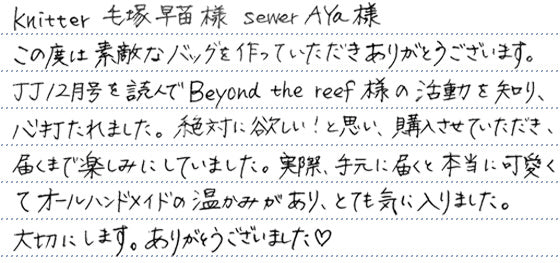 Knitter 毛塚早苗様 sewer AYa 様
この度は素敵なバッグを作っていただきありがとうございます。
JJ12月号を読んでBeyond the reef様の活動を知り、
心打たれました。絶対に欲しい！と思い、購入させていただき、
届くまで楽しみにしていました。実際、手元に届くと本当に可愛く
てオールハンドメイドの温かみがあり、とても気に入りました。
大切にします。ありがとうございました♡